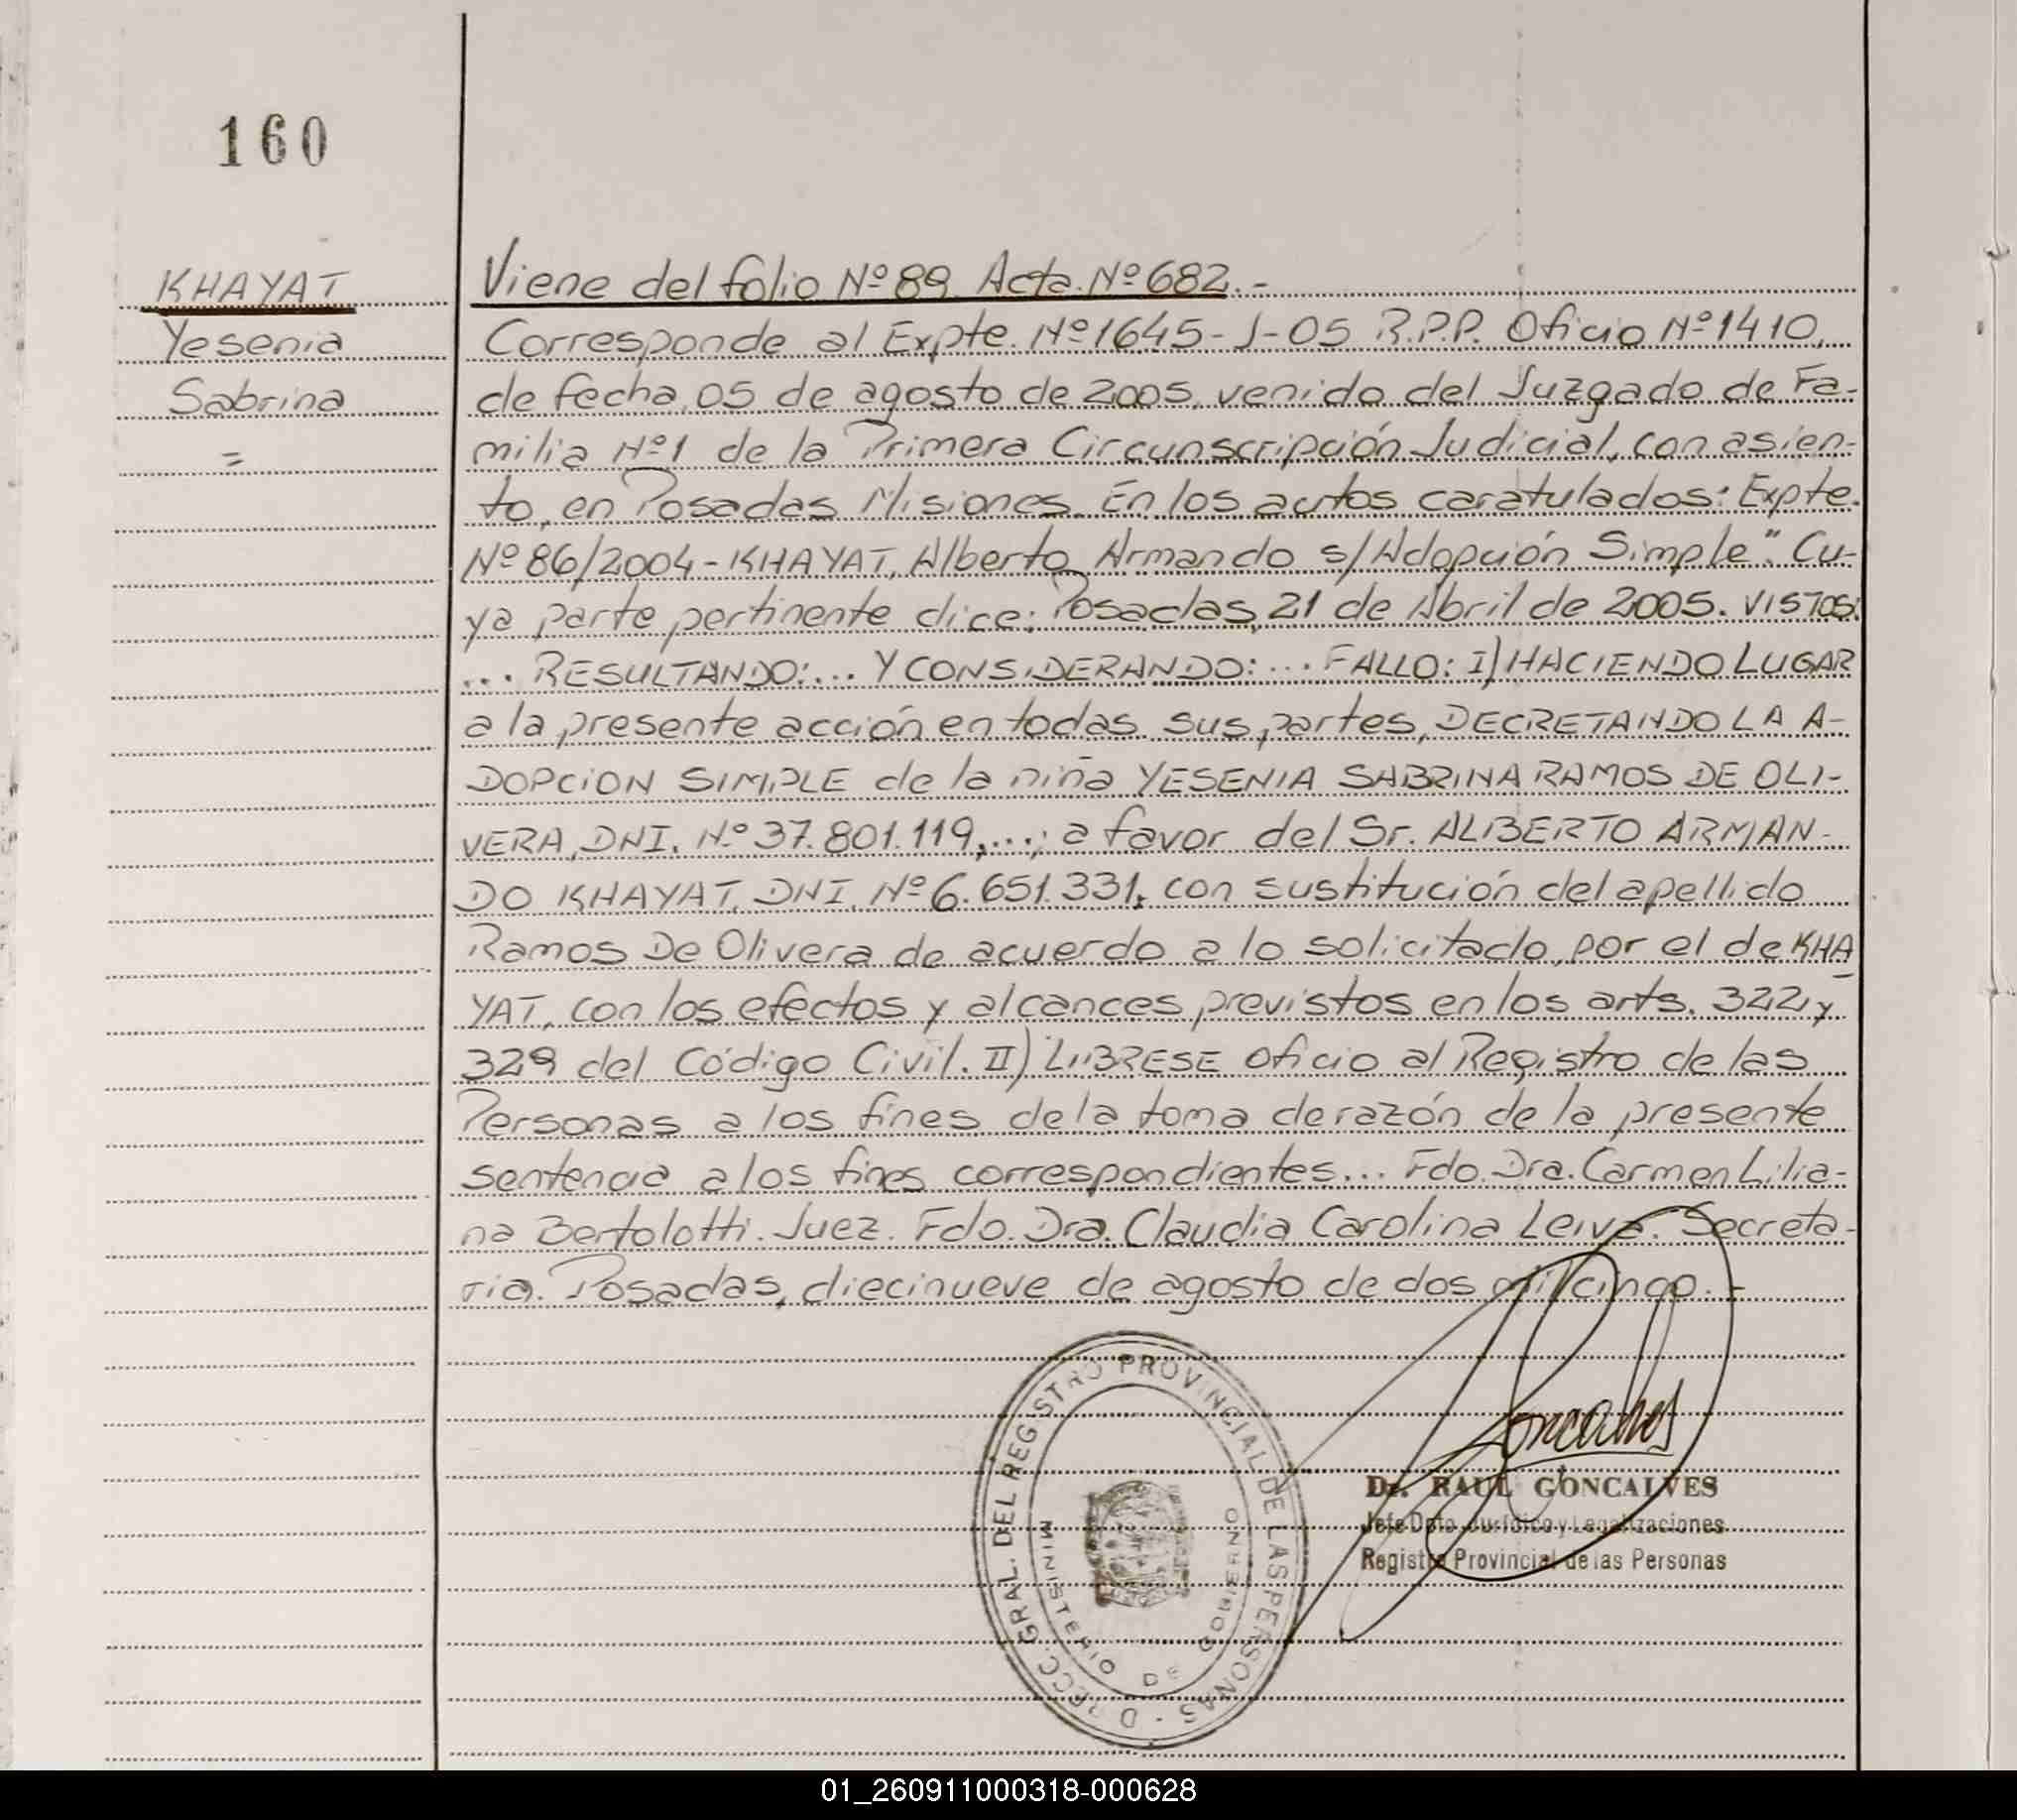 160
KHAYAT
Yesenia
Sabrina
=
Viene del folio Nº 89 Acta Nº 682.-
Corresponde al Expte. Nº 1645-J-05 R.P.P. Oficio Nº 1410,
de fecha, 05 de agosto de 2005, venido del Juzgado de Fa-
milia Nº 1 de la Primera Circunscripción Judicial, con asien-
to, en Posadas Misiones. En los autos caratulados: Expte.
Nº 86/2004-KHAYAT, Alberto Armando s/Adopción Simple". Cu-
ya parte pertinente dice: Posadas, 21 de Abril de 2005. VISTOS:
... RESULTANDO:... Y CONSIDERANDO:... FALLO: I) HACIENDO LUGAR
a la presente acción en todas sus partes, DECRETANDO LA A-
DOPCION SIMPLE de la niña YESENIA SABRINA RAMOS DE OLI-
VERA, DNI. Nº 37.801.119,...; a favor del Sr. ALBERTO ARMAN-
DO KHAYAT, DNI. Nº 6.651.331, con sustitución del apellido
Ramos De Olivera de acuerdo a lo solicitado, por el de KHA
YAT, con los efectos y alcances previstos en los arts. 322 y
329 del Código Civil. II) LIBRESE oficio al Registro de las
Personas a los fines de la toma de razón de la presente
sentencia a los fines correspondientes... Fdo. Dra. Carmen Lilia-
na Bertolotti. Juez. Fdo. Dra. Claudia Carolina Leiva. Secreta-
ria. Posadas, diecinueve de agosto de dos mil cinco.-
DIRECC. GRAL. DEL REGISTRO PROVINCIAL DE LAS PERSONAS -
MINISTERIO DE GOBIERNO
Goncalves
Dr. RAUL GONCALVES
Jefe Dpto. Jurídico y Legalizaciones
Registro Provincial de las Personas
01_260911000318-000628